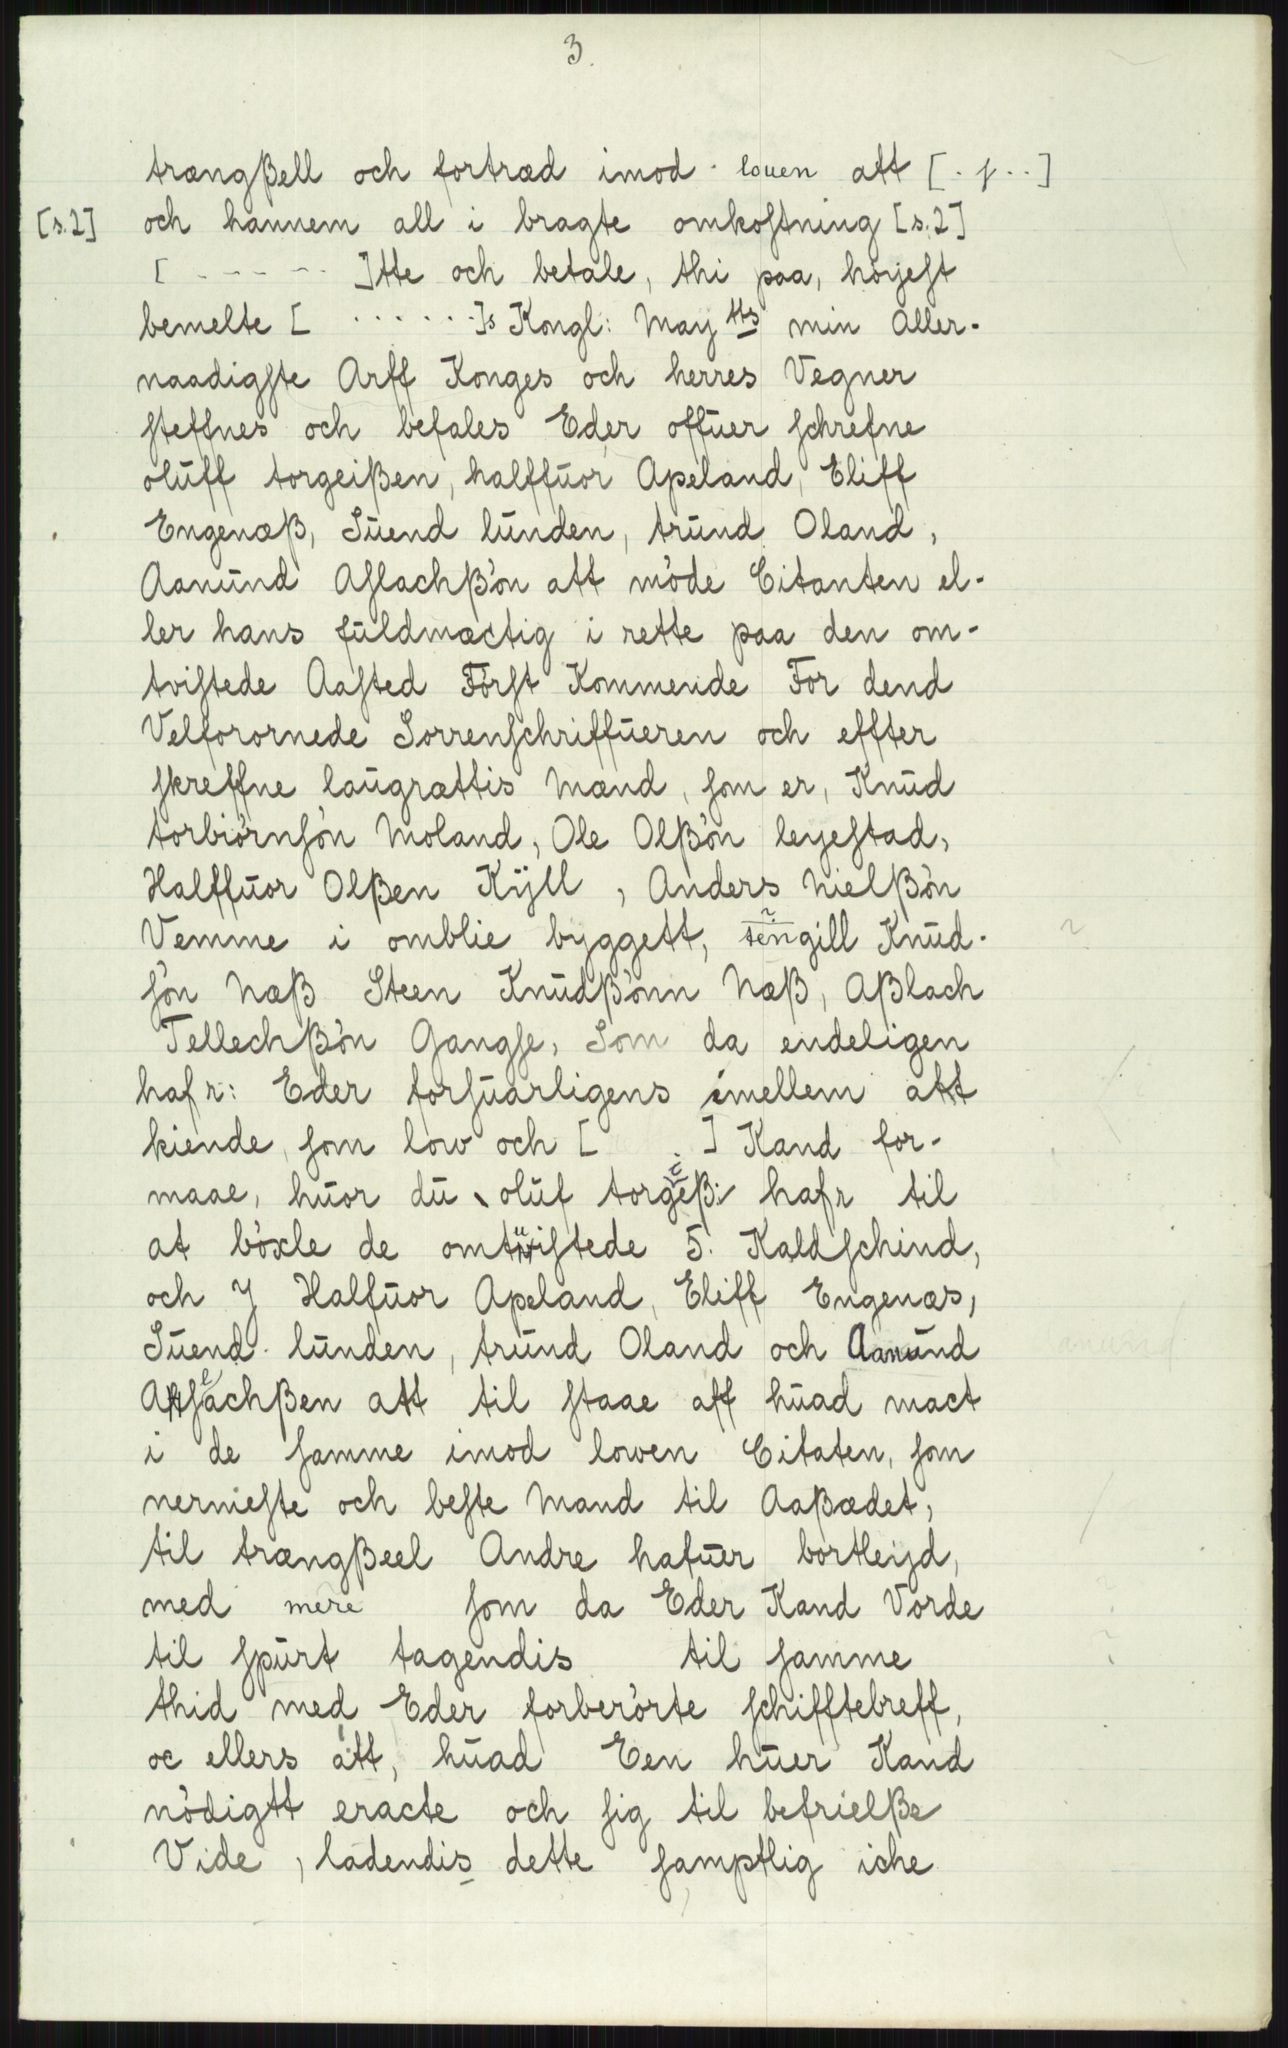 3.
trængßell och fortræd imod louen att [. f . .]
[s.2] och hannem all i bragte omkostning [s.2]
[ - - - - - ]tte och betale, thi paa, høyest
bemelte [ . . . . . . ]s Kongl: May tts min Aller-
naadigste Arff Konges och herres Vegner
steffnes och befales Eder offuer schrefne
oluff torgeißen, halffuor Apeland, Eliff
Engenæß, Suend lunden, trund Oland,
Aanund Aslachßøn att møde Citanten el-
ler hans fuldmæctig i rette paa den om-
tvistede Aasted Først Kommende For dend
Velforornede Sorrenschriffueren och effter
skreffne laugrættis Mænd, som er, Knud
torbiørnsøn Moland, Ole Olßøn leyestad,
Halffuor Olßen Kÿll, Anders Nielßøn
Vemme i omblie byggett, tengill Knud-
søn Næß Steen Knudßønn Næß, Aßlach
Tellechßøn Gangse, Som da endeligen
hafr: Eder forsuarligens imellem att
kiende, som low och [ . ] Kand for-
maae, huor du oluf torgeiß: hafr til
at bøxle de omtuistede 5. Kaldschind,
och J Halfuor Apeland, Eliff Engenæs,
Suend lunden, trund Oland och Aanund anund
Aslachßen att til staae aff huad mact
i de samme imod lowen Citaten, som
nernieste och beste Mand til Aaßædet,
til trængßeel Andre hafuer bortleyd,
med mere som da Eder Kand Vorde
til spurt tagendis til samme
thid med Eder forberørte schifftebreff,
oc ellers att, huad Een huer Kand
nødigtt eracte och sig til befrielße
Vide, ladendis dette samptlig iche